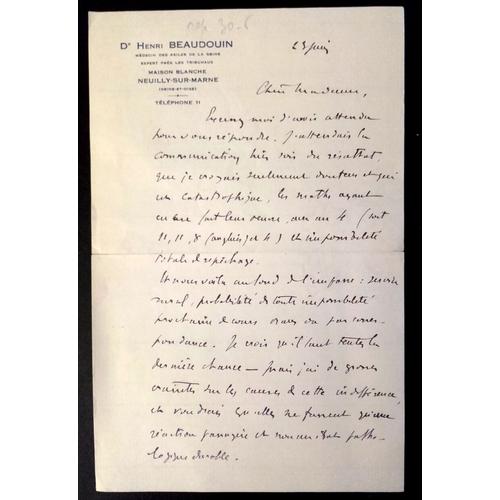 rép 30-6
Dr Henri BEAUDOUIN
MÉDECIN DES ASILES DE LA SEINE
EXPERT PRÈS LES TRIBUNAUX
MAISON BLANCHE
NEUILLY-SUR-MARNE
(SEINE-ET-OISE)
TÉLÉPHONE 11
23 juin
Chère Madame,
Excusez moi d'avoir attendu
pour vous répondre. J'attendais la
communication hier soir du résultat,
que je croyais seulement douteux et qui
est catastrophique, les maths ayant
fait leur œuvre, avec un 4 (soit
11, 11, 8 (anglais) et 4) et impossibilité
totale de repêchage.
Et nous voilà au fond de l'impasse :
rural, probabilité de toute impossibilité
prochaine de cours oraux ou par corres-
pondance. Je crois qu'il faut tenter la
dernière chance — mais j'ai de grosses
craintes sur les causes de cette indifférence,
et voudrais qu'elles ne fussent qu'une
réaction passagère et non un état patho-
logique durable.